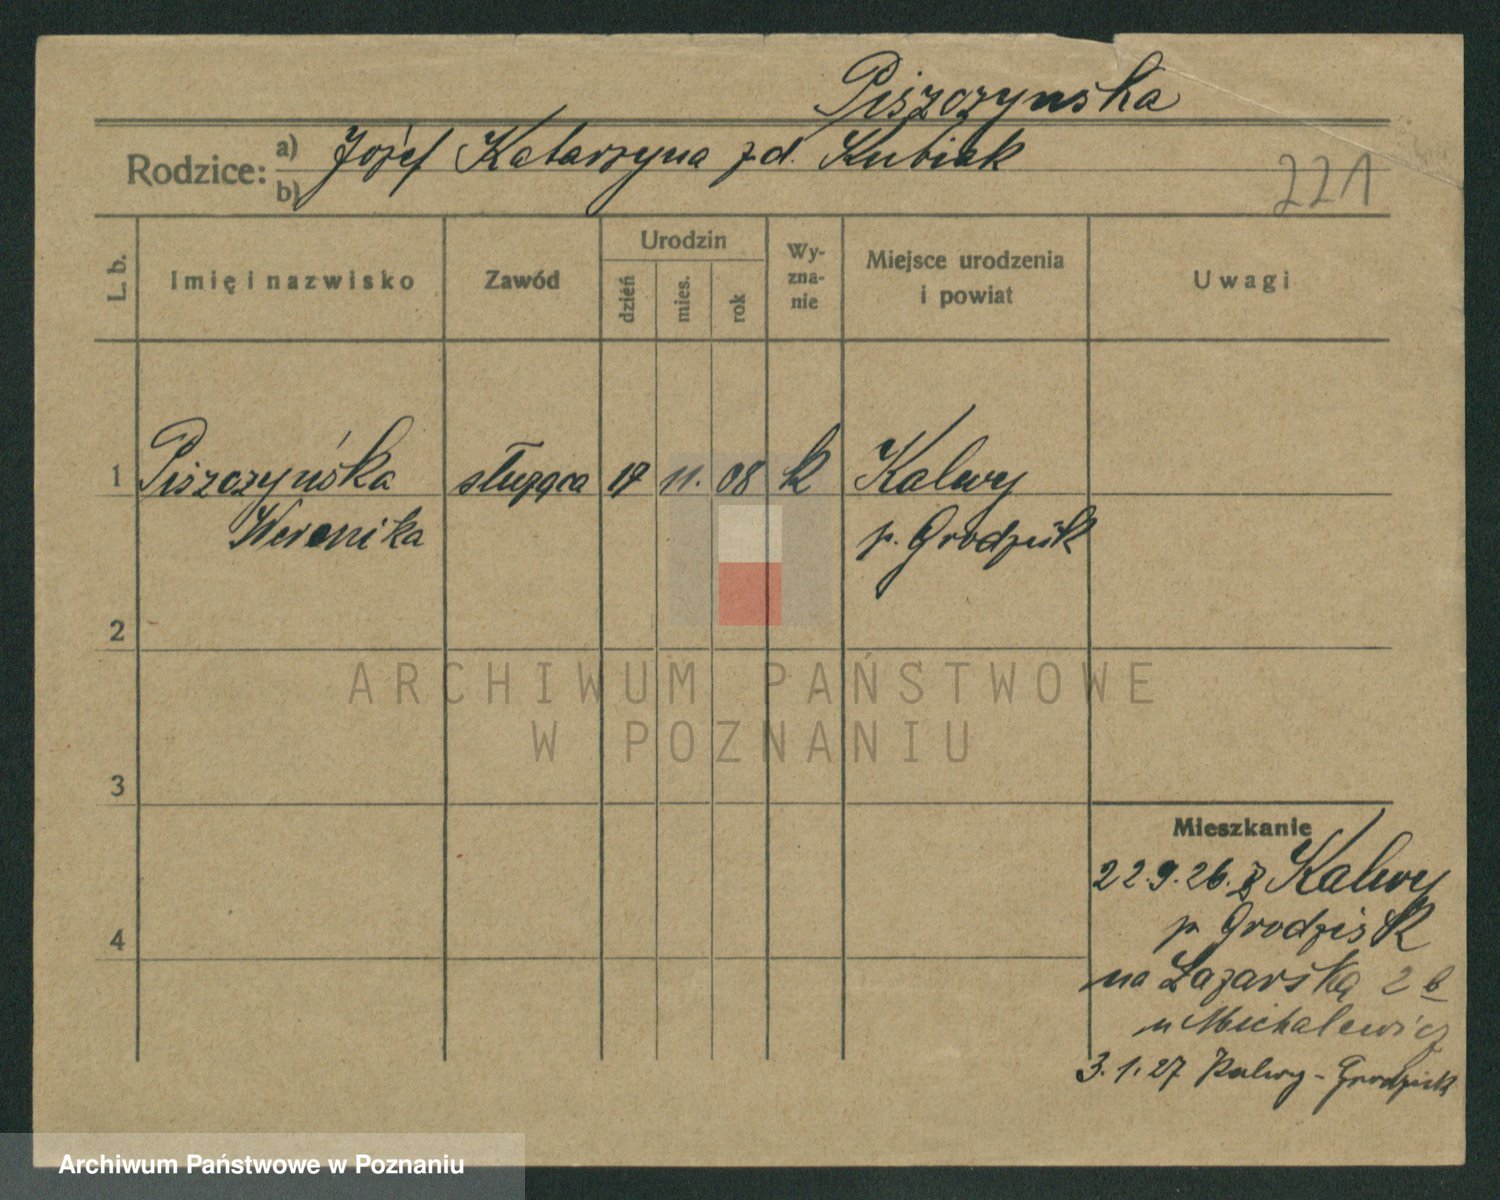 Piszczynska
Rodzice: a) Józef Katarzyna z d. Kubiak
b)
221
L. b.
Imię i nazwisko
Zawód
Urodzin
dzień
mies.
rok
Wy-
zna-
nie
Miejsce urodzenia
i powiat
Uwagi
1 Piszczyńska służąca 17 11. 08 k Kalwy
Weronika p. Grodzisk
2
ARCHIWUM PAŃSTWOWE
W POZNANIU
3
Mieszkanie
22.9.26. z Kalwy
p. Grodzisk
4
na Łazarską 2 b
u Michalewicz
3.1.27 Kalwy - Grodzisk
Archiwum Państwowe w Poznaniu